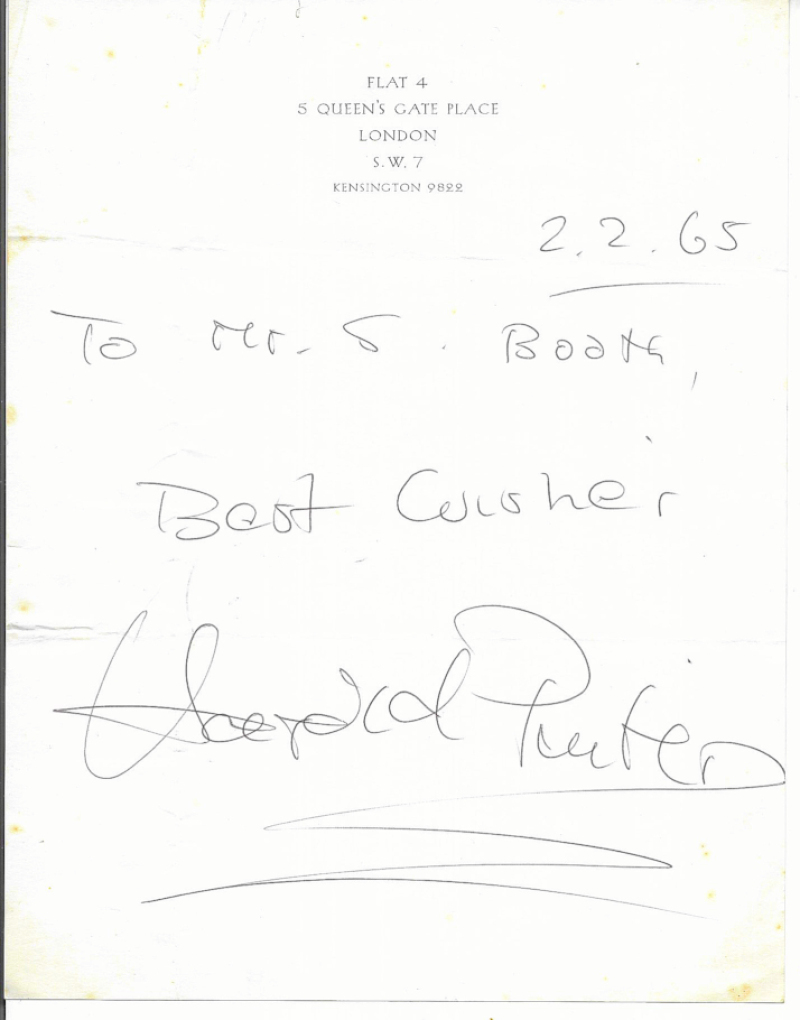 FLAT 4
5 QUEEN'S GATE PLACE
LONDON
S.W. 7
KENSINGTON 9822
2.2.65
To Mr. S. Booth,
Best Wishes
Harold Pinter